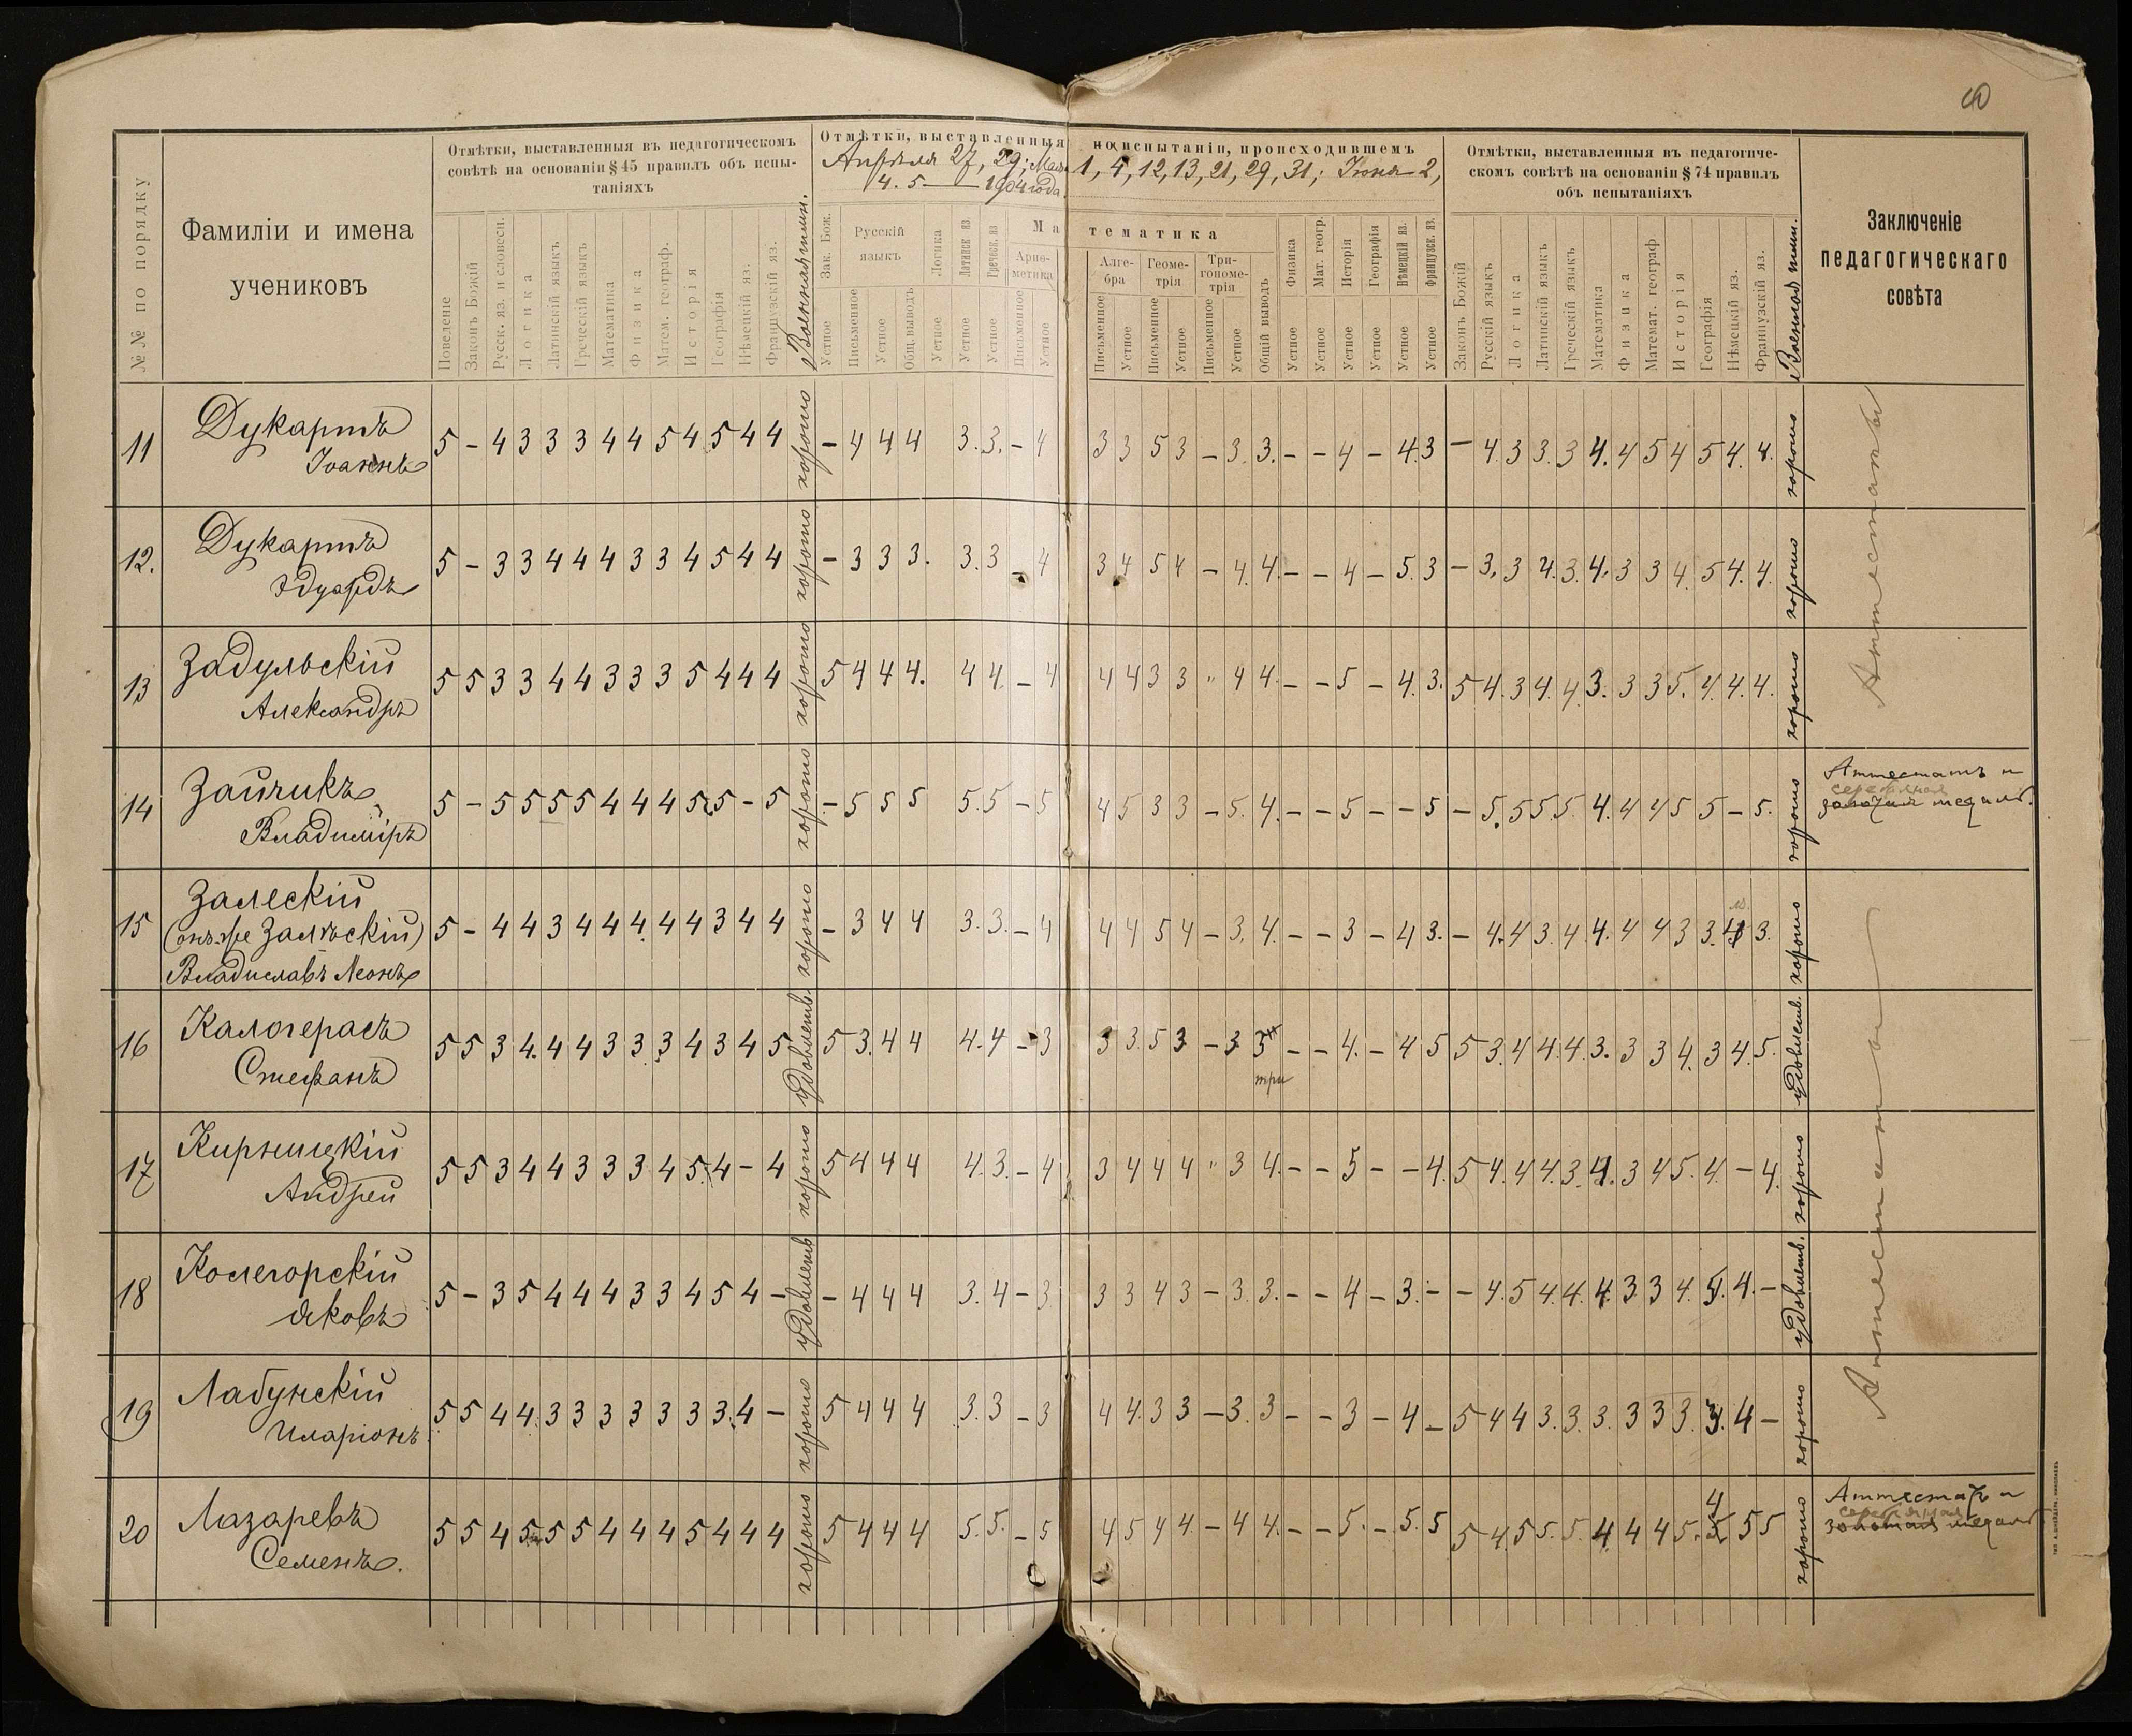 №№ по порядку
Фамиліи и имена
учениковъ
Отмѣтки, выставленныя въ педагогическомъ
совѣтѣ на основаніи § 45 правилъ объ испы-
таніяхъ
Поведеніе
Законъ Божій
Русск. яз. и словесн.
Логика
Латинскій языкъ
Греческій языкъ
Математика
Физика
Матем. географ.
Исторія
Географія
Нѣмецкій яз.
Французскій яз.
Отмѣтки, выставленныя по испытаніи, происходившемъ
Апрѣля 27, 29; Мая 1, 4, 12, 13, 21, 29, 31; Іюня 2,
4. 5 — 1904 года.
Зак. Бож.
Русскій
языкъ
Логика
Латинск яз.
Греческ. яз
Математика
Ариѳ-
метика
Алге-
бра
Геоме-
трія
Три-
гономе-
трія
Общій выводъ
Физика
Мат. геогр.
Исторія
Географія
Нѣмецкій яз.
Французск. яз.
Устное
Письменное
Устное
Общ. выводъ
Устное
Устное
Устное
Письменное
Устное
Письменное
Устное
Письменное
Устное
Письменное
Устное
Устное
Устное
Устное
Устное
Устное
Устное
Отмѣтки, выставленныя въ педагогиче-
скомъ совѣтѣ на основаніи § 74 правилъ
объ испытаніяхъ
Законъ Божій
Русскій языкъ
Логика
Латинскій языкъ
Греческій языкъ
Математика
Физика
Математ. географ
Исторія
Географія
Нѣмецкій яз.
Французскій яз.
Заключеніе
педагогическаго
совѣта
11 Дукартъ 5 - 4 3 3 3 4 4 5 4 5 4 4 хорошо - 4 4 4 3. 3. - 4 3 3 5 3 - 3. 3. - - 4 - 4. 3 - 4. 3 3. 3 4. 4 5 4 5 4. 4. хорошо
Іоаннъ
12. Дукартъ 5 - 3 3 4 4 4 3 3 4 5 4 4 хорошо - 3 3 3. 3. 3 - 4 3 4 5 4 - 4. 4. - - 4 - 5. 3 - 3. 3 4. 3. 4. 3 3 4. 5 4. 4. хорошо
Эдуардъ
Аттестатъ
13 Задульскій 5 5 3 3 4 4 3 3 3 5 4 4 4 хорошо 5 4 4 4. 4 4. - 4 4 4 3 3 " 4 4. - - 5 - 4. 3. 5 4. 3 4. 4. 3. 3 3 5. 4. 4. 4. хорошо
Александръ
14 Зайчикъ 5 - 5 5 5 5 4 4 4 5 5 - 5 хорошо - 5 5 5 5. 5 - 5 4 5 3 3 - 5. 4. - - 5 - - 5 - 5. 5 5 5. 4. 4 4 5 5 - 5. хорошо Аттестатъ и
серебряная
Владиміръ золотая медаль.
15 Залескій 5 - 4 4 3 4 4 4 4 4 3 4 4 хорошо - 3 4 4 3. 3. - 4 4 4 5 4 - 3. 4. - - 3 - 4 3. - 4. 4 3. 4. 4. 4 4 3 3. 3. хорошо
(онъ-же Залѣскій)
Владиславъ Леонъ
16 Калогерасъ 5 5 3 4. 4 4 3 3 3 4 3 4 5 удовлетв. 5 3. 4 4 4. 4 - 3 3 3. 5 3 - 3 3 - - 4. - 4 5 5 3. 4 4. 4. 3. 3 3 4. 3 4. 5. удовлетв.
Стефанъ три
17 Кирницкій 5 5 3 4 4 3 3 3 4 5. 4 - 4 хорошо 5 4 4 4 4. 3. - 4 3 4 4 4 " 3 4. - - 5 - - 4. 5 4. 4 4. 3. 4. 3 4 5. 4. - 4. хорошо
Андрей
Аттестатъ
18 Колегорскій 5 - 3 5 4 4 4 3 3 4 5 4 - удовлетв - 4 4 4 3. 4 - 3 3 3 4 3 - 3. 3. - - 4 - 3. - - 4. 5 4. 4. 4. 3 3 4. 4. 4. - удовлетв.
Яковъ
19 Лабунскій 5 5 4 4. 3 3 3 3 3 3 3. 4 - хорошо 5 4 4 4 3. 3 - 3 4 4. 3 3 - 3. 3 - - 3 - 4 - 5 4 4 3. 3. 3. 3 3 3. 3. 4 - хорошо
Иларіонъ
20 Лазаревъ 5 5 4 5 5 5 4 4 4 5 4 4 4 хорошо 5 4 4 4 5. 5. - 5 4 5 4 4. - 4 4. - - 5. - 5. 5 5 4. 5 5. 5. 4 4 4 5. 4 5 5 хорошо Аттестатъ и
серебряная
Семенъ. золотая медаль